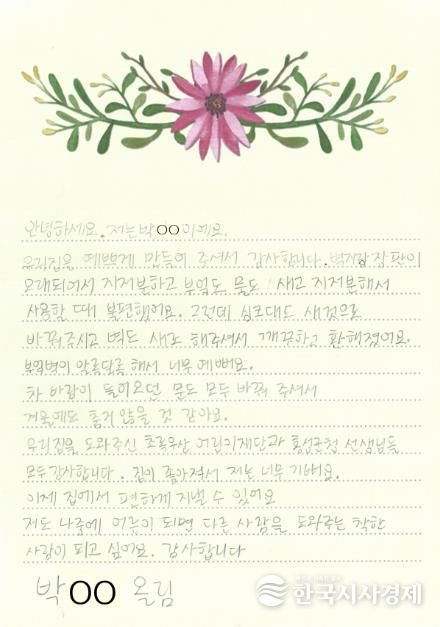 안녕하세요. 저는 박OO이에요.
우리집을 예쁘게 만들어 주셔서 감사합니다. 벽지랑 장판이
오래되어서 지저분하고 부엌도 물도 새고 지저분해서
사용할 때 불편했어요. 그런데 싱크대도 새것으로
바꿔주시고 벽도 새로 해주셔서 깨끗하고 환해졌어요.
부엌벽이 알록달록 해서 너무 예뻐요.
차 바람이 들어오던 문도 모두 바꿔 주셔서
겨울에도 춥지 않을 것 같아요.
우리집을 도와주신 초록우산 어린이재단과 홍성군청 선생님들
모두 감사합니다. 집이 좋아져서 저는 너무 기뻐요.
이제 집에서 편하게 지낼 수 있어요
저도 나중에 어른이 되면 다른 사람을 도와주는 착한
사람이 되고 싶어요. 감사합니다
박OO 올림
한국시사경제